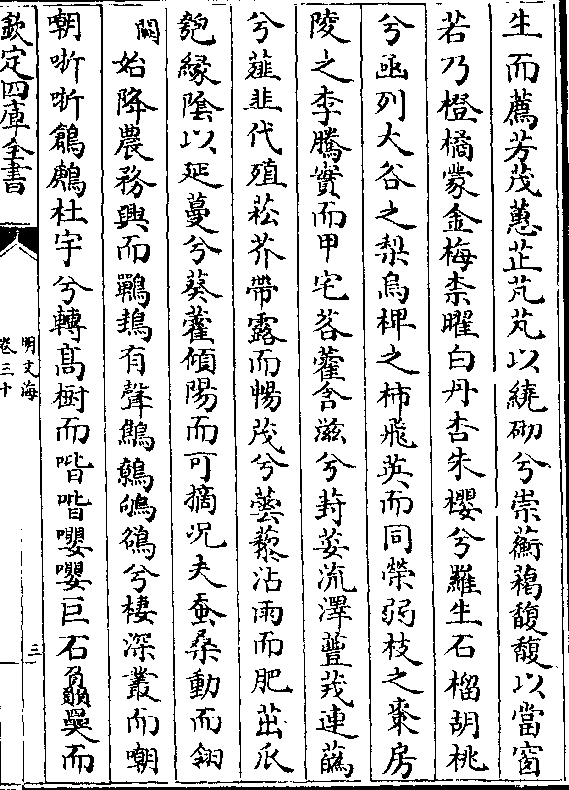 生而薦芳茂蕙芷芃芃以繞砌兮崇蘅藒馥馥以當窗
若乃橙橘蒙金梅柰曜白丹杏朱櫻兮羅生石榴胡桃
兮亟列大谷之梨烏椑之柿飛英而同榮弱枝之棗房
陵之李騰實而甲宅茖藿含滋兮葑葑流澤薑茂連蘤
兮薤韭代殖菘芥帶露而暢茂兮蘡藜沾雨而肥茁瓜
匏緣陰以延蔓兮葵藿傾陽而可摘况夫蚕桑動而翎
闕始降農務興而鸎鵱有聲鷦鷯鴝鵒兮棲深叢而嘲
嘲哳哳鶬鷓杜宇兮轉高樹而喈喈嚶嚶巨石贔屭而
欽定四庫全書
明文海
卷三十
三